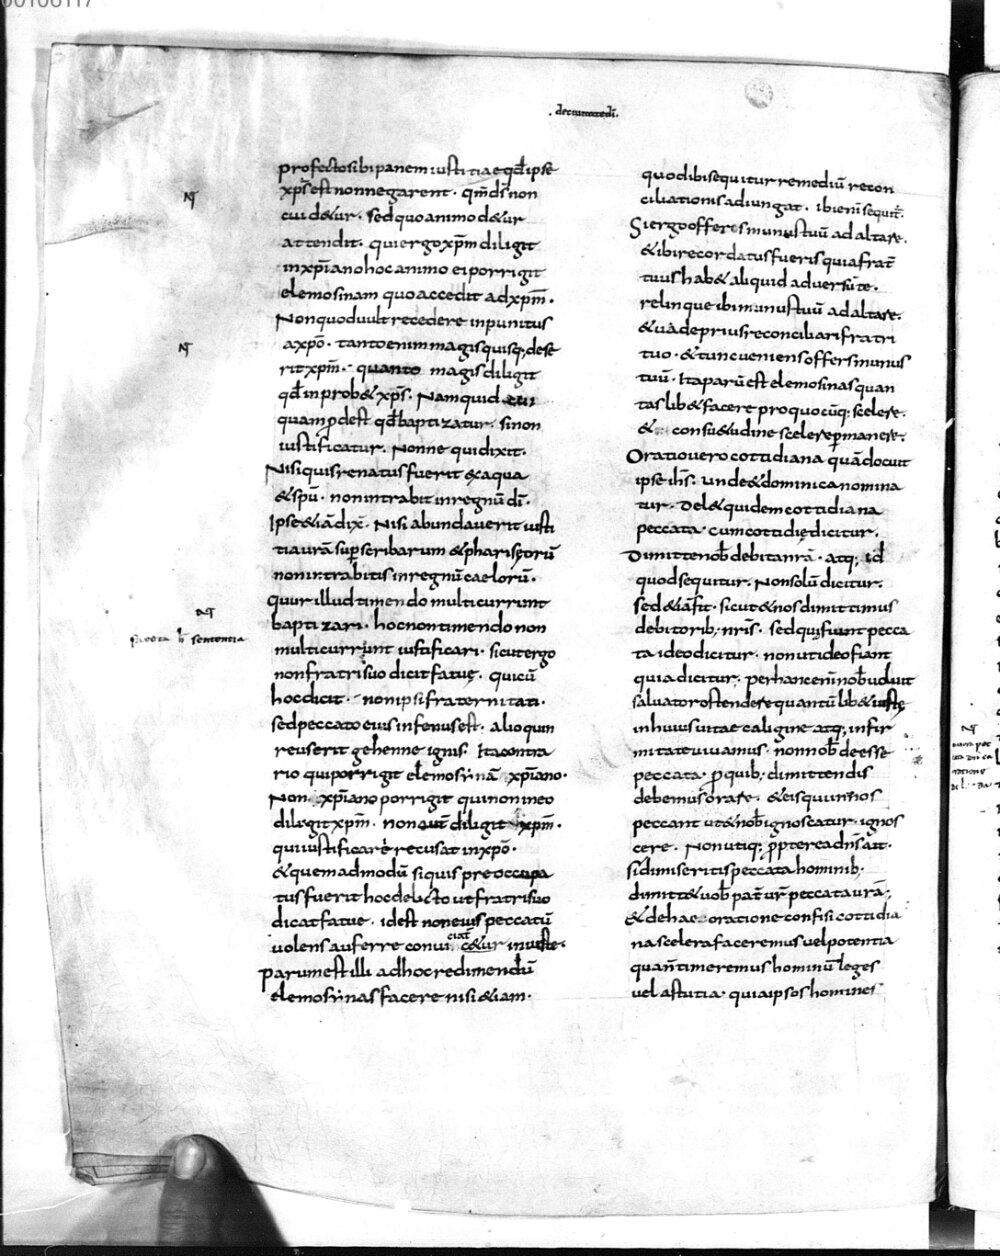 00106117
. de ciuitate di .
profecto sibi panem iustitiae qđ ipse
xp̄s est non negarent . qm̄ ds̄ non
cui d&ur . sed quo animo d&ur
attendit . qui ergo xp̄m diligit
in xp̄iano hoc animo ei porrigit
elemosinam quo accedit ad xp̄m .
Non quo uult recedere inpunitus
a xp̄o . tanto enim magis quisq; dese
rit xp̄m . quanto magis diligit
qđ inprob& xp̄s . Nam quid
quam ꝓdest qđ baptizatur . si non
iustificatur . Nonne qui dixit .
Nisi quis renatus fuerit ex aqua
& spū . non intrabit in regnū dī .
Ipse &iā dix̄ . Nisi abundauerit iusti
tia urā sup scribarum & pharisęorū
non intrabitis in regnū caelorū .
Quur illud timendo multi currunt
baptizari . hoc non timendo non
multi currunt iustificari . sicut ergo
non fratri suo dicit fatuę . qui cū
hoc dicit . non ipsi fraternitati .
sed peccato eius infensus est . alioquin
reus erit gehenne ignis . Ita contra
rio qui porrigit elemosynā xp̄iano .
Non xp̄iano porrigit qui non in eo
diligit xp̄m . non diligit xp̄m .
qui iustificari recusat in xp̄o .
& quemadmodū si quis preoccupa
tus fuerit hoc delicto ut fratri suo
dicat fatue . id est non eius peccatū
uolens auferre conui ciat
c&ur iniuste .
Parum est illi ad hoc redimendū
elemosynas facere nisi &iam .
quod ibi sequitur remediū recon
ciliationis adiungat . ibi enī sequit̄ .
Si ergo offeres munus tuū ad altare .
& ibi recordatus fueris quia frat̄
tuus hab& aliquid aduersū te .
relinque ibi munus tuū ad altare .
& uade prius reconciliari fratri
tuo . & tunc ueniens offers munus
tuū . Ita parū est elemosinas quan
tas lib& facere pro quocūq; scelere .
& consu&udine scelere ꝑmanere .
Oratio uero cottidiana quā docuit
ipse ihs̄ . unde & dominica nomina
tur . Del& quidem cottidiana
peccata . cum cottidię dicitur .
Dimitte nob̄ debita nrā . atq; id
quod sequitur . Non solū dicitur .
sed &iā fit . sicut & nos dimittimus
debitorib; nris̄ . sed quia fiunt pecca
ta ideo dicitur . non ut ideo fiant
quia dicitur . per hanc enī nob̄ uoluit
saluator ostendere quantū lib& iustę
in huius uitae caligine atq; infir
mitate uiuamus . non nob̄ deesse
peccata . ꝓ quib; dimittendis
debemus orare . & eis qui in nos
peccant ut & nob̄ ignoscatur . ignos
cere . Non utiq; ꝓpterea dn̄s ait .
si dimiseritis peccata hominib;
dimitt& uob̄ pat̄ ur̄ peccata urā ;
& de hac oratione confisi cottidia
na scelera faceremus uel potentia
qua n̄ timeremus hominū leges
uel astutia . qua ipsos homines